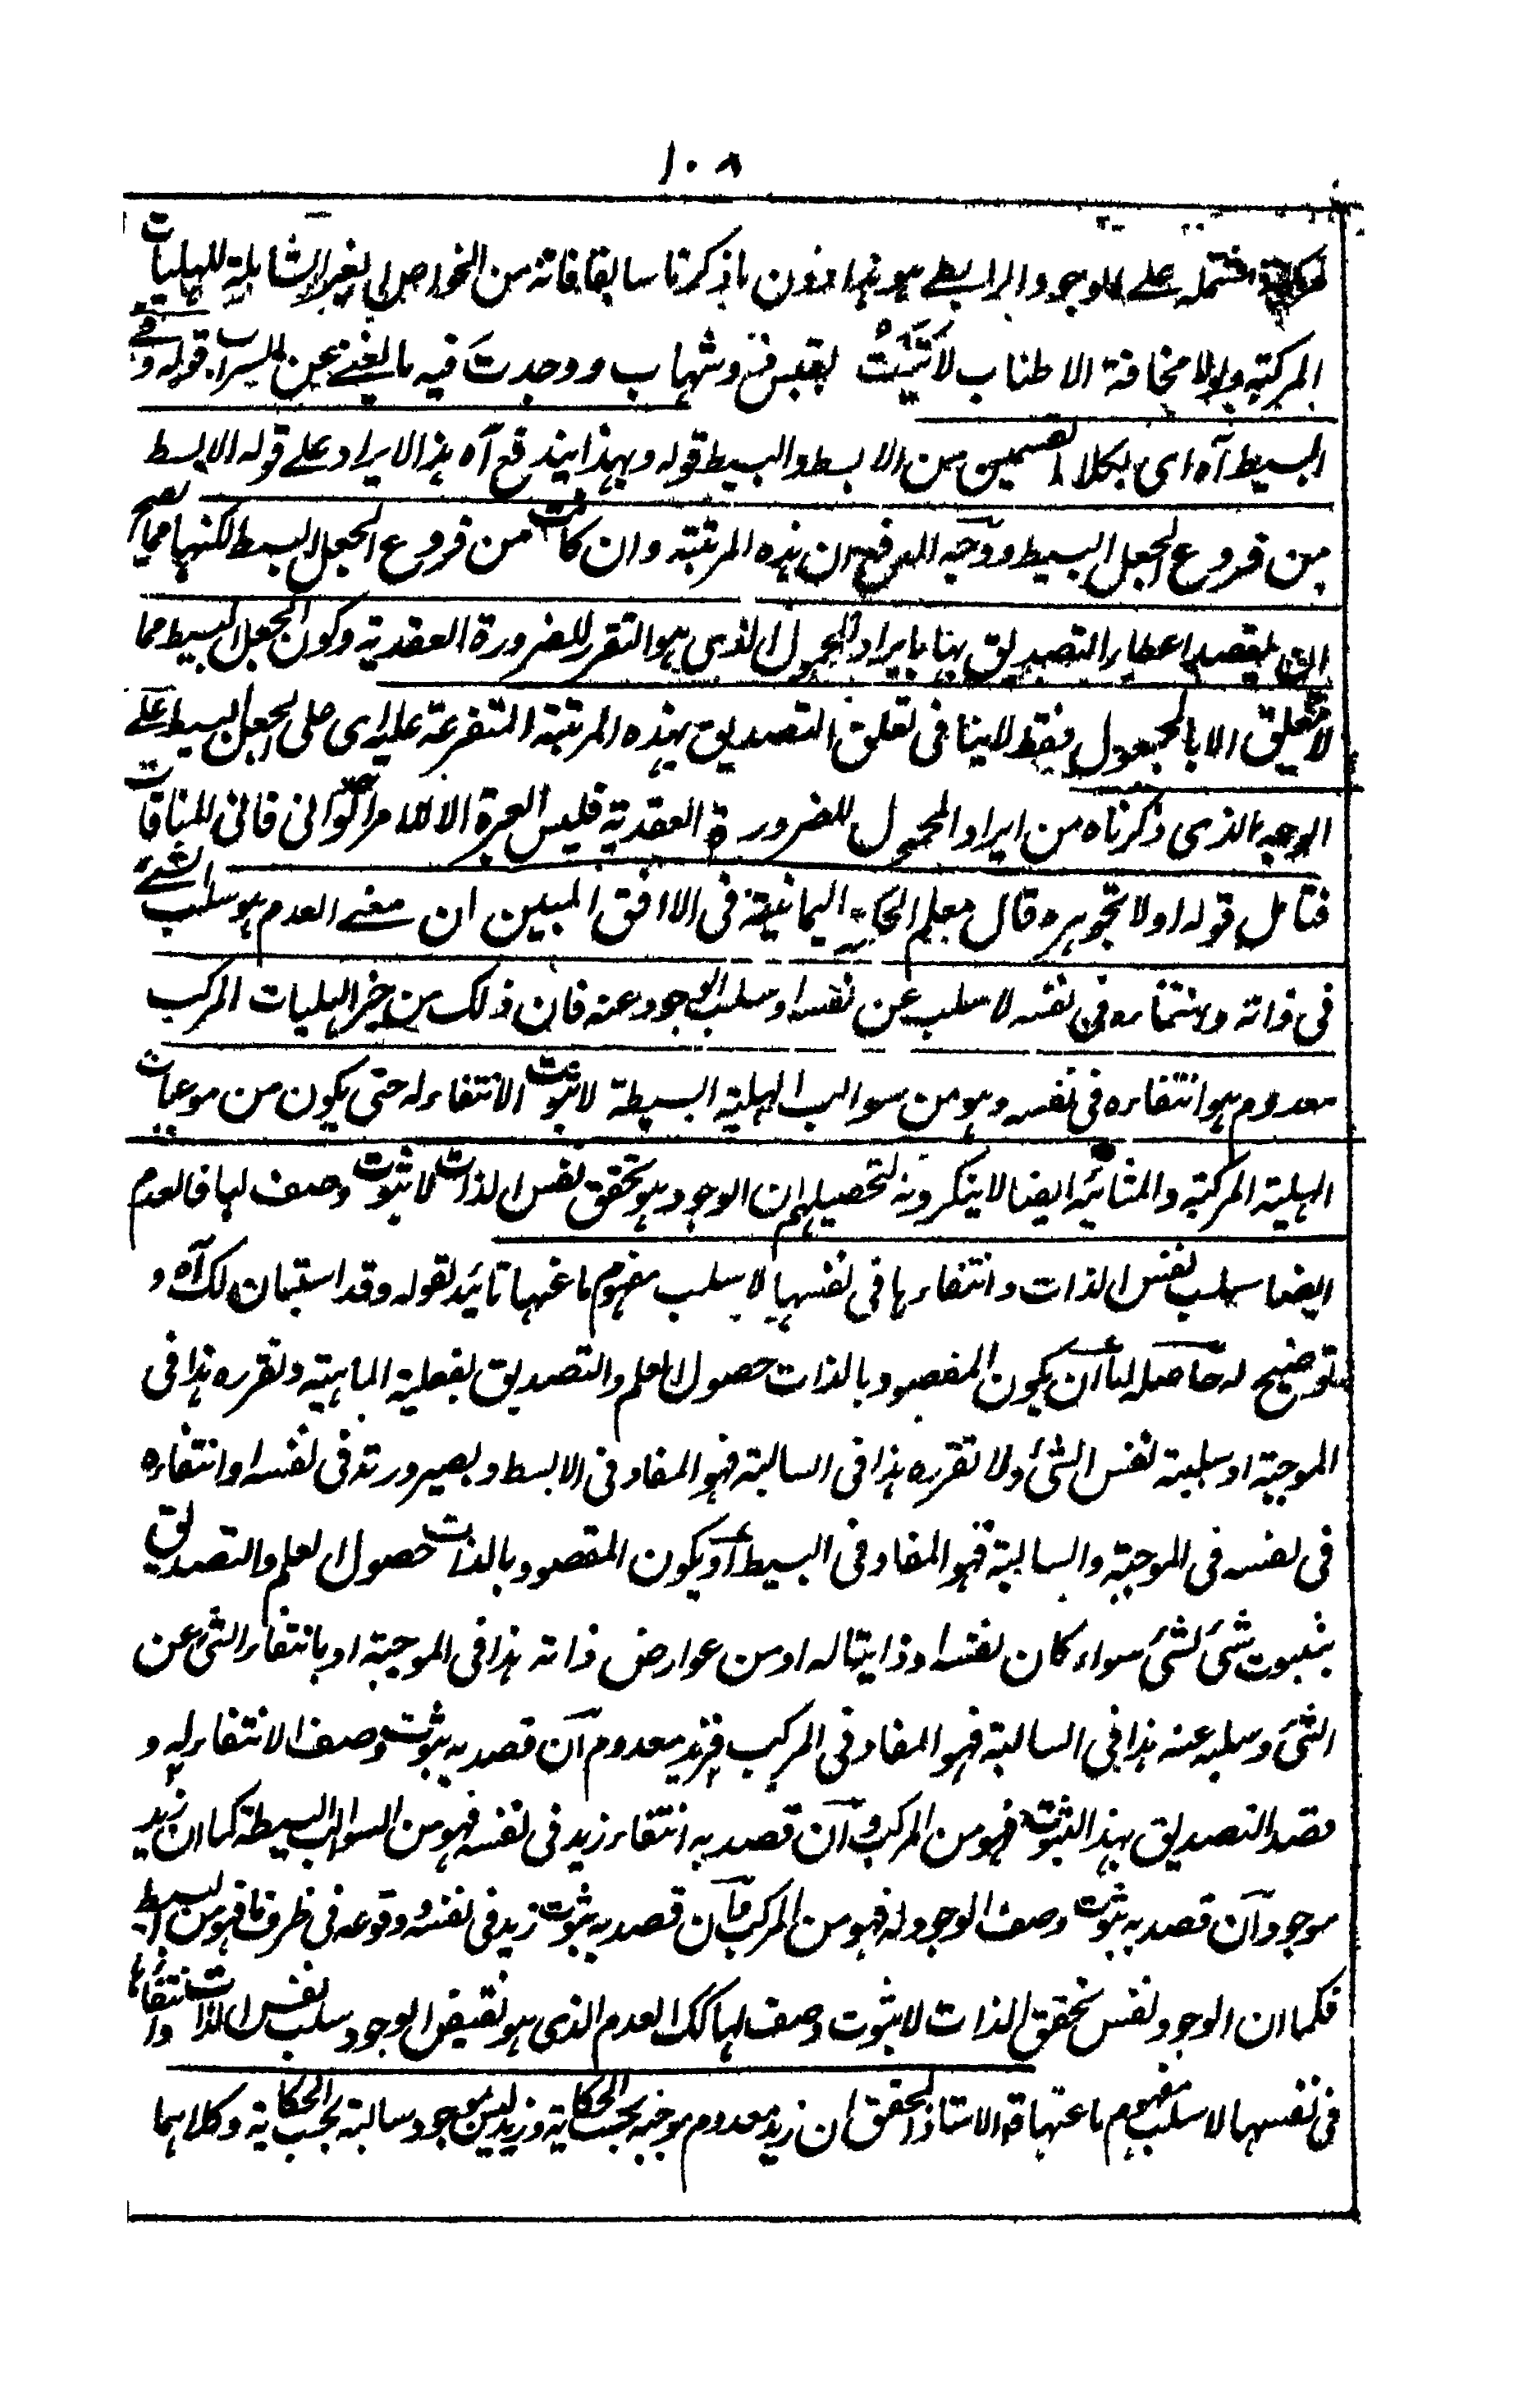 ١٠٨
مشتملة على الوجود الرابطي هو هذا دون ما ذكرنا سابقا فانه من الخواص الغير الشاملة للهليات
المركبة ولولا مخافة الاطناب لأتيت بقبس وشهاب ووجدت فيه ما يغني عن السراب قوله وفي
البسيط آه اى بكلا القسمين من الابسط والبسيط قوله وبهذا يندفع آه هذا الايراد على قوله الابسط
من فروع الجعل البسيط ووجه الدفع ان هذه المرتبة وان كانت من فروع الجعل البسيط لكنها مما يصح
ان يقصد اعطاء التصديق بها بايراد المحمول الذى هو التقرر للضرورة العقدية وكون الجعل البسيط مما
لا يتعلق الا بالمجعول فقط لا ينافى تعلق التصديق بهذه المرتبة المتفرعة عليه اى على الجعل البسيط على
الوجه الذى ذكرناه من ايراد المحمول للضرورة العقدية فليس العبرة الا للامر فانى للمنافات
فتامل قوله اولا تجوهره قال معلم الحكمة اليمانية فى الافق المبين ان معنى العدم هو سلب الشئ
فى ذاته وانتفاءه فى نفسه لا سلب عن نفسه او سلب الوجود عنه فان ذلك من حيز الهليات المركب
معدوم هو انتفاءه فى نفسه وهو من سوالب الهلية البسيطة لا ثبوت الانتفاء له حتى يكون من موجبات
الهلية المركبة والمشائية ايضا لا ينكرونه لتحصيلهم ان الوجود هو تحقق نفس الذات لا ثبوت وصف لها فالعدم
ايضا سلب نفس الذات وانتفاءها فى نفسها لا سلب مفهوم ما عنها تائيد لقوله وقد استبان لك آه و
توضيح له حاصله اما ان يكون المقصود بالذات حصول العلم والتصديق بفعلية الماهية وتقرره هذا فى
الموجبة او سلبية نفس الشئ ولا تقرره هذا فى السالبة فهو المفاد فى الابسط وبصيرورته فى نفسه او انتفاءه
فى نفسه فى الموجبة والسالبة فهو المفاد فى البسيط او يكون المقصود بالذات حصول العلم والتصديق
بثبوت شئ لشئ سواء كان نفسه او ذاتيا له او من عوارض ذاته هذا فى الموجبة او بانتفاء الشئ عن
الشئ وسلبه عنه هذا فى السالبة فهو المفاد فى المركب فزيد معدوم ان قصد به ثبوت وصف الانتفاء له و
قصد التصديق بهذا الثبوت فهو من المركب وان قصد به انتفاء زيد فى نفسه فهو من السوالب البسيطة كما ان زيد
موجود ان قصد به ثبوت وصف الوجود له فهو من المركب وان قصد به ثبوت زيد فى نفسه ووقوعه فى ظرف ما فهو من البسيط
فكما ان الوجود نفس تحقق الذات لا ثبوت وصف لها كك العدم الذى هو نقيض الوجود سلب نفس الذات وانتفاءها
فى نفسها لا سلب مفهوم ما عنها قه الاستاذ المحقق ان زيد معدوم موجبة بحسب الحكاية وزيد ليس بموجود سالبة بحسب الحكاية وكلاهما